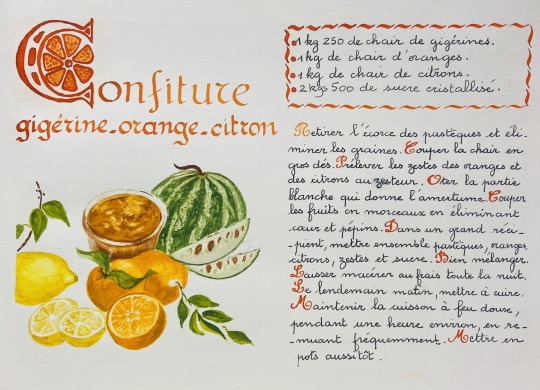 Confiture
gigérine-orange-citron
1 kg 250 de chair de gigérines.
1 kg de chair d'oranges.
1 kg de chair de citrons.
2 kgs 500 de sucre cristallisé.
Retirer l'écorce des pastèques et éli-
miner les graines. Couper la chair en
gros dés. Prélever les zestes des oranges et
des citrons au zesteur. Oter la partie
blanche qui donne l'amertume. Couper
les fruits en morceaux en éliminant
cœur et pépins. Dans un grand réci-
pient, mettre ensemble pastèques, oranges,
citrons, zestes et sucre. Bien mélanger.
Laisser macérer au frais toute la nuit.
Le lendemain matin, mettre à cuire.
Maintenir la cuisson à feu doux,
pendant une heure environ, en re-
muant fréquemment. Mettre en
pots aussitôt.